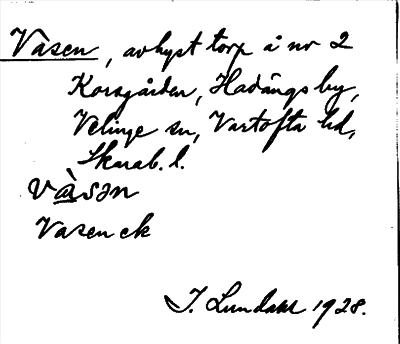 Vasen, avhyst torp å nr 2
Korsgården, Hadängs by,
Velinge sn, Vartofta hd,
Skarab. l.
vàsən
Vasen ek
J. Lundahl 1928.